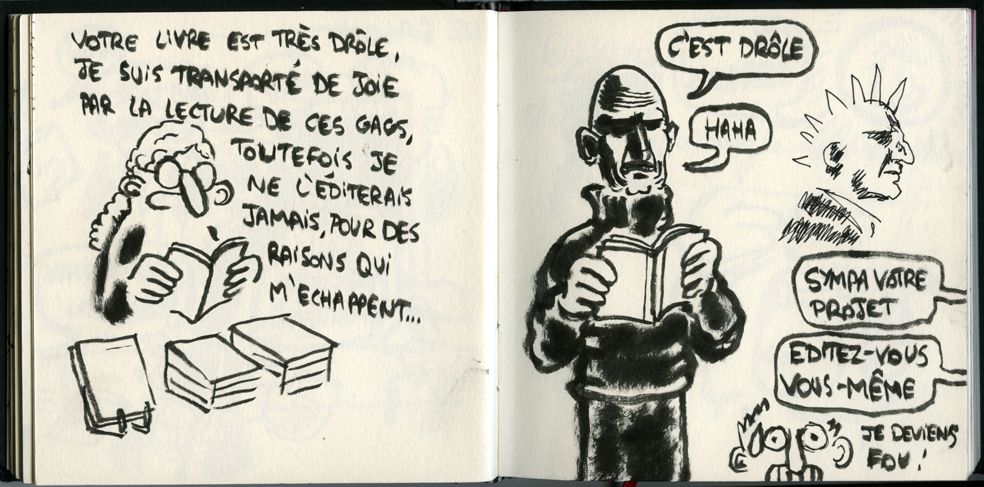 VOTRE LIVRE EST TRÈS DRÔLE,
JE SUIS TRANSPORTÉ DE JOIE
PAR LA LECTURE DE CES GAGS,
TOUTEFOIS JE
NE L'ÉDITERAIS
JAMAIS, POUR DES
RAISONS QUI
M'ECHAPPENT...
C'EST DRÔLE
HAHA
SYMPA VOTRE
PROJET
EDITEZ-VOUS
VOUS-MÊME
JE DEVIENS
FOU!